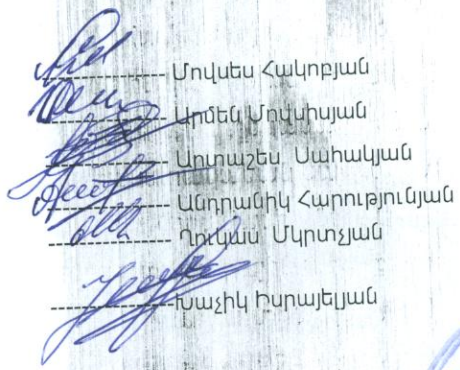 ---------------- Մովսես Հակոբյան
---------------- Արմեն Մովսիսյան
---------------- Արտաշես Սահակյան
---------------- Անդրանիկ Հարությունյան
---------------- Ղուկաս Մկրտչյան
---------------- Խաչիկ Իսրայելյան